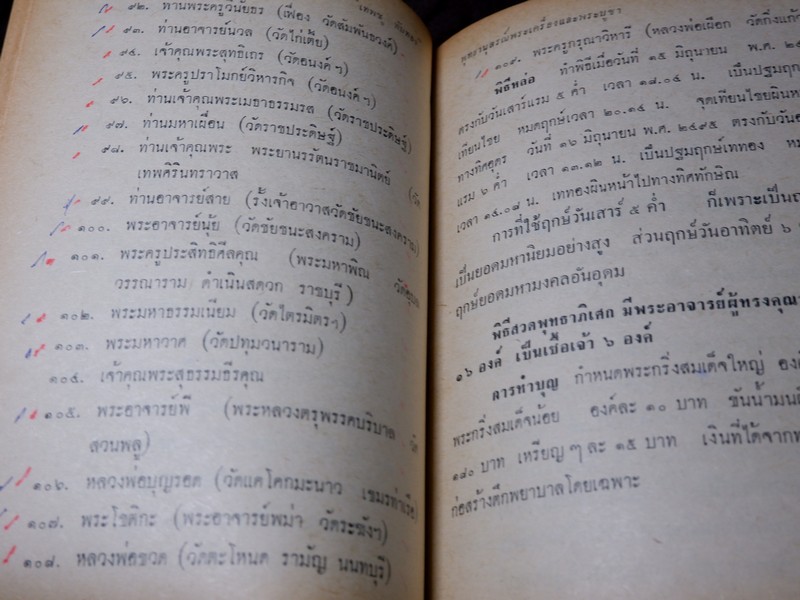 ๙๒. ท่านพระครูวินัยธร (เฟื่อง วัดสัมพันธวงศ์)
๙๓. ท่านอาจารย์นวล (วัดไก่เตี้ย)
๙๔. เจ้าคุณพระสุทธิเถร (วัดอนงค์ฯ)
๙๕. พระครูปราโมกย์วิหารกิจ (วัดอนงค์ฯ)
๙๖. ท่านเจ้าคุณพระเมธาธรรมรส (วัดราชประดิษฐ์)
๙๗. ท่านมหาเผื่อน (วัดราชประดิษฐ์)
๙๘. ท่านเจ้าคุณพระ พระยานรรัตนราชมานิตย์
เทพศิรินทราวาส
๙๙. ท่านอาจารย์สาย (รั้งเจ้าอาวาสวัดชัยชนะสงคราม)
๑๐๐. พระอาจารย์นุ้ย (วัดชัยชนะสงคราม)
๑๐๑. พระครูประสิทธิศีลคุณ (พระมหาพิณ วัดอุบล
วรรณาราม ดำเนินสดวก ราชบุรี)
๑๐๒. พระมหาธรรมเนียม (วัดไตรมิตรฯ)
๑๐๓. พระมหาวาศ (วัดปทุมวนาราม)
๑๐๔. เจ้าคุณพระสุธรรมธีรคุณ
๑๐๕. พระอาจารย์พี (พระหลวงตรุพรรคบริบาล วัด
สวนพลู)
๑๐๖. หลวงพ่อบุญรอด (วัดแคโคกมะนาว เขมรท่าเรือ)
๑๐๗. พระโชติกะ (พระอาจารย์พม่า วัดระฆังฯ)
๑๐๘. หลวงพ่อขวด (วัดตะโหนด รามัญ นนทบุรี)
พุทธานุสรณ์พระเครื่องและพระบูชา
๑๐๙. พระครูกรุณาวิหารี (หลวงพ่อเผือก วัดกิ่งแก้ว
พิธีหล่อ ทำพิธีเมื่อวันที่ ๑๕ มิถุนายน พ.ศ.
ตรงกับวันเสาร์แรม ๕ ค่ำ เวลา ๑๘.๐๔ น. เป็นปฐมฤกษ์
เทียนไชย หมดฤกษ์เวลา ๒๐.๑๔ น. จุดเทียนไชยผินหน้า
ทางทิศอุดร วันที่ ๑๖ มิถุนายน พ.ศ. ๒๔๙๕ ตรงกับวัน
แรม ๖ ค่ำ เวลา ๑๓.๑๒ น. เป็นปฐมฤกษ์เททอง
เวลา ๑๕.๐๘ น. เททองผินหน้าไปทางทิศทักษิณ
การที่ใช้ฤกษ์วันเสาร์ ๕ ค่ำ ก็เพราะเป็น
เป็นยอดมหานิยมอย่างสูง ส่วนฤกษ์วันอาทิตย์ ๖
ฤกษ์ยอดมหามงคลอันอุดม
พิธีสวดพุทธาภิเศก มีพระอาจารย์ผู้ทรงคุณ
๑๖ องค์ เป็นเชื้อเจ้า ๖ องค์
การทำบุญ กำหนดพระกริ่งสมเด็จใหญ่ องค์
พระกริ่งสมเด็จน้อย องค์ละ ๑๐ บาท ขันน้ำมนต์
๑๘๐ บาท เหรียญๆ ละ ๑๕ บาท เงินที่ได้จาก
ก่อสร้างตึกพยาบาลโดยเฉพาะ